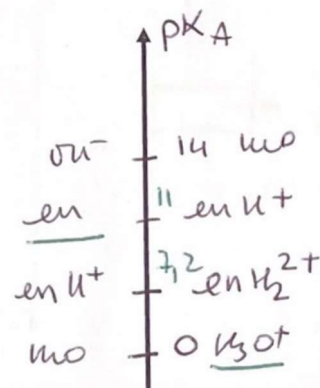 pKA
OH⁻ 14 H₂O
en 11 enH⁺
enH⁺ 7,2 enH₂²⁺
H₂O 0 H₃O⁺